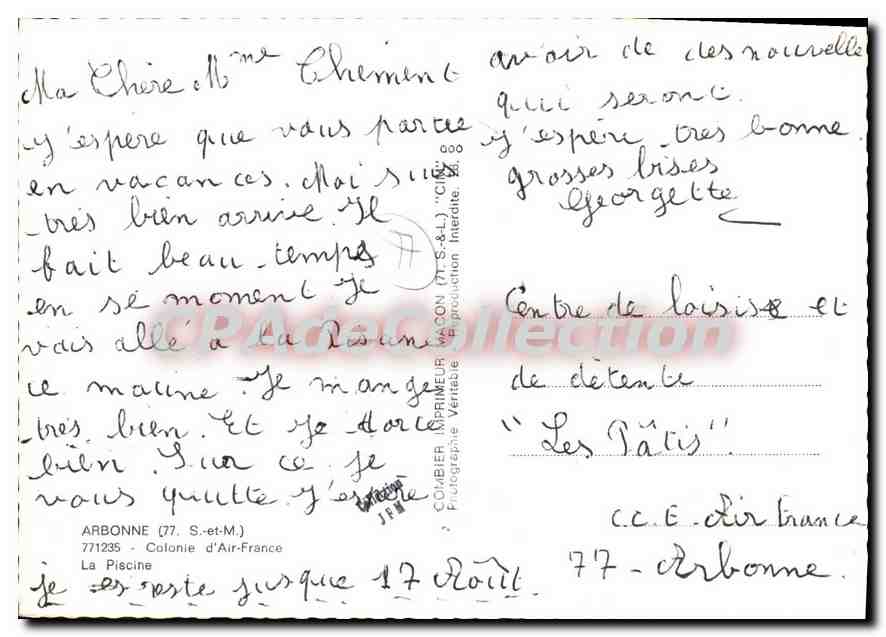 Ma Chère Mme Chément
J'espère que vous partie
en vacances. Moi suis
très bien arrivé. Il
fait beau temps
en se moment Je
vais allé à la
ce matine. Je mange
très bien. Et je dorce
bien. Sur ce je
vous quitte J'espère
avoir de des nouvelle
qui seront.
J'espère très bonne.
grosses bises
Georgette
je reste jusque 17 Août.
77
ARBONNE (77. S.-et-M.)
771235 - Colonie d'Air-France
La Piscine
COMBIER IMPRIMEUR MACON (71. S.-&-L.) "CIM"
Photographie Véritable - Reproduction Interdite.
Collection
JPM
Centre de loisire et
de détente
"Les Pâtis".
C.C.E. Air France
77 - Arbonne.
CPAdeCollection